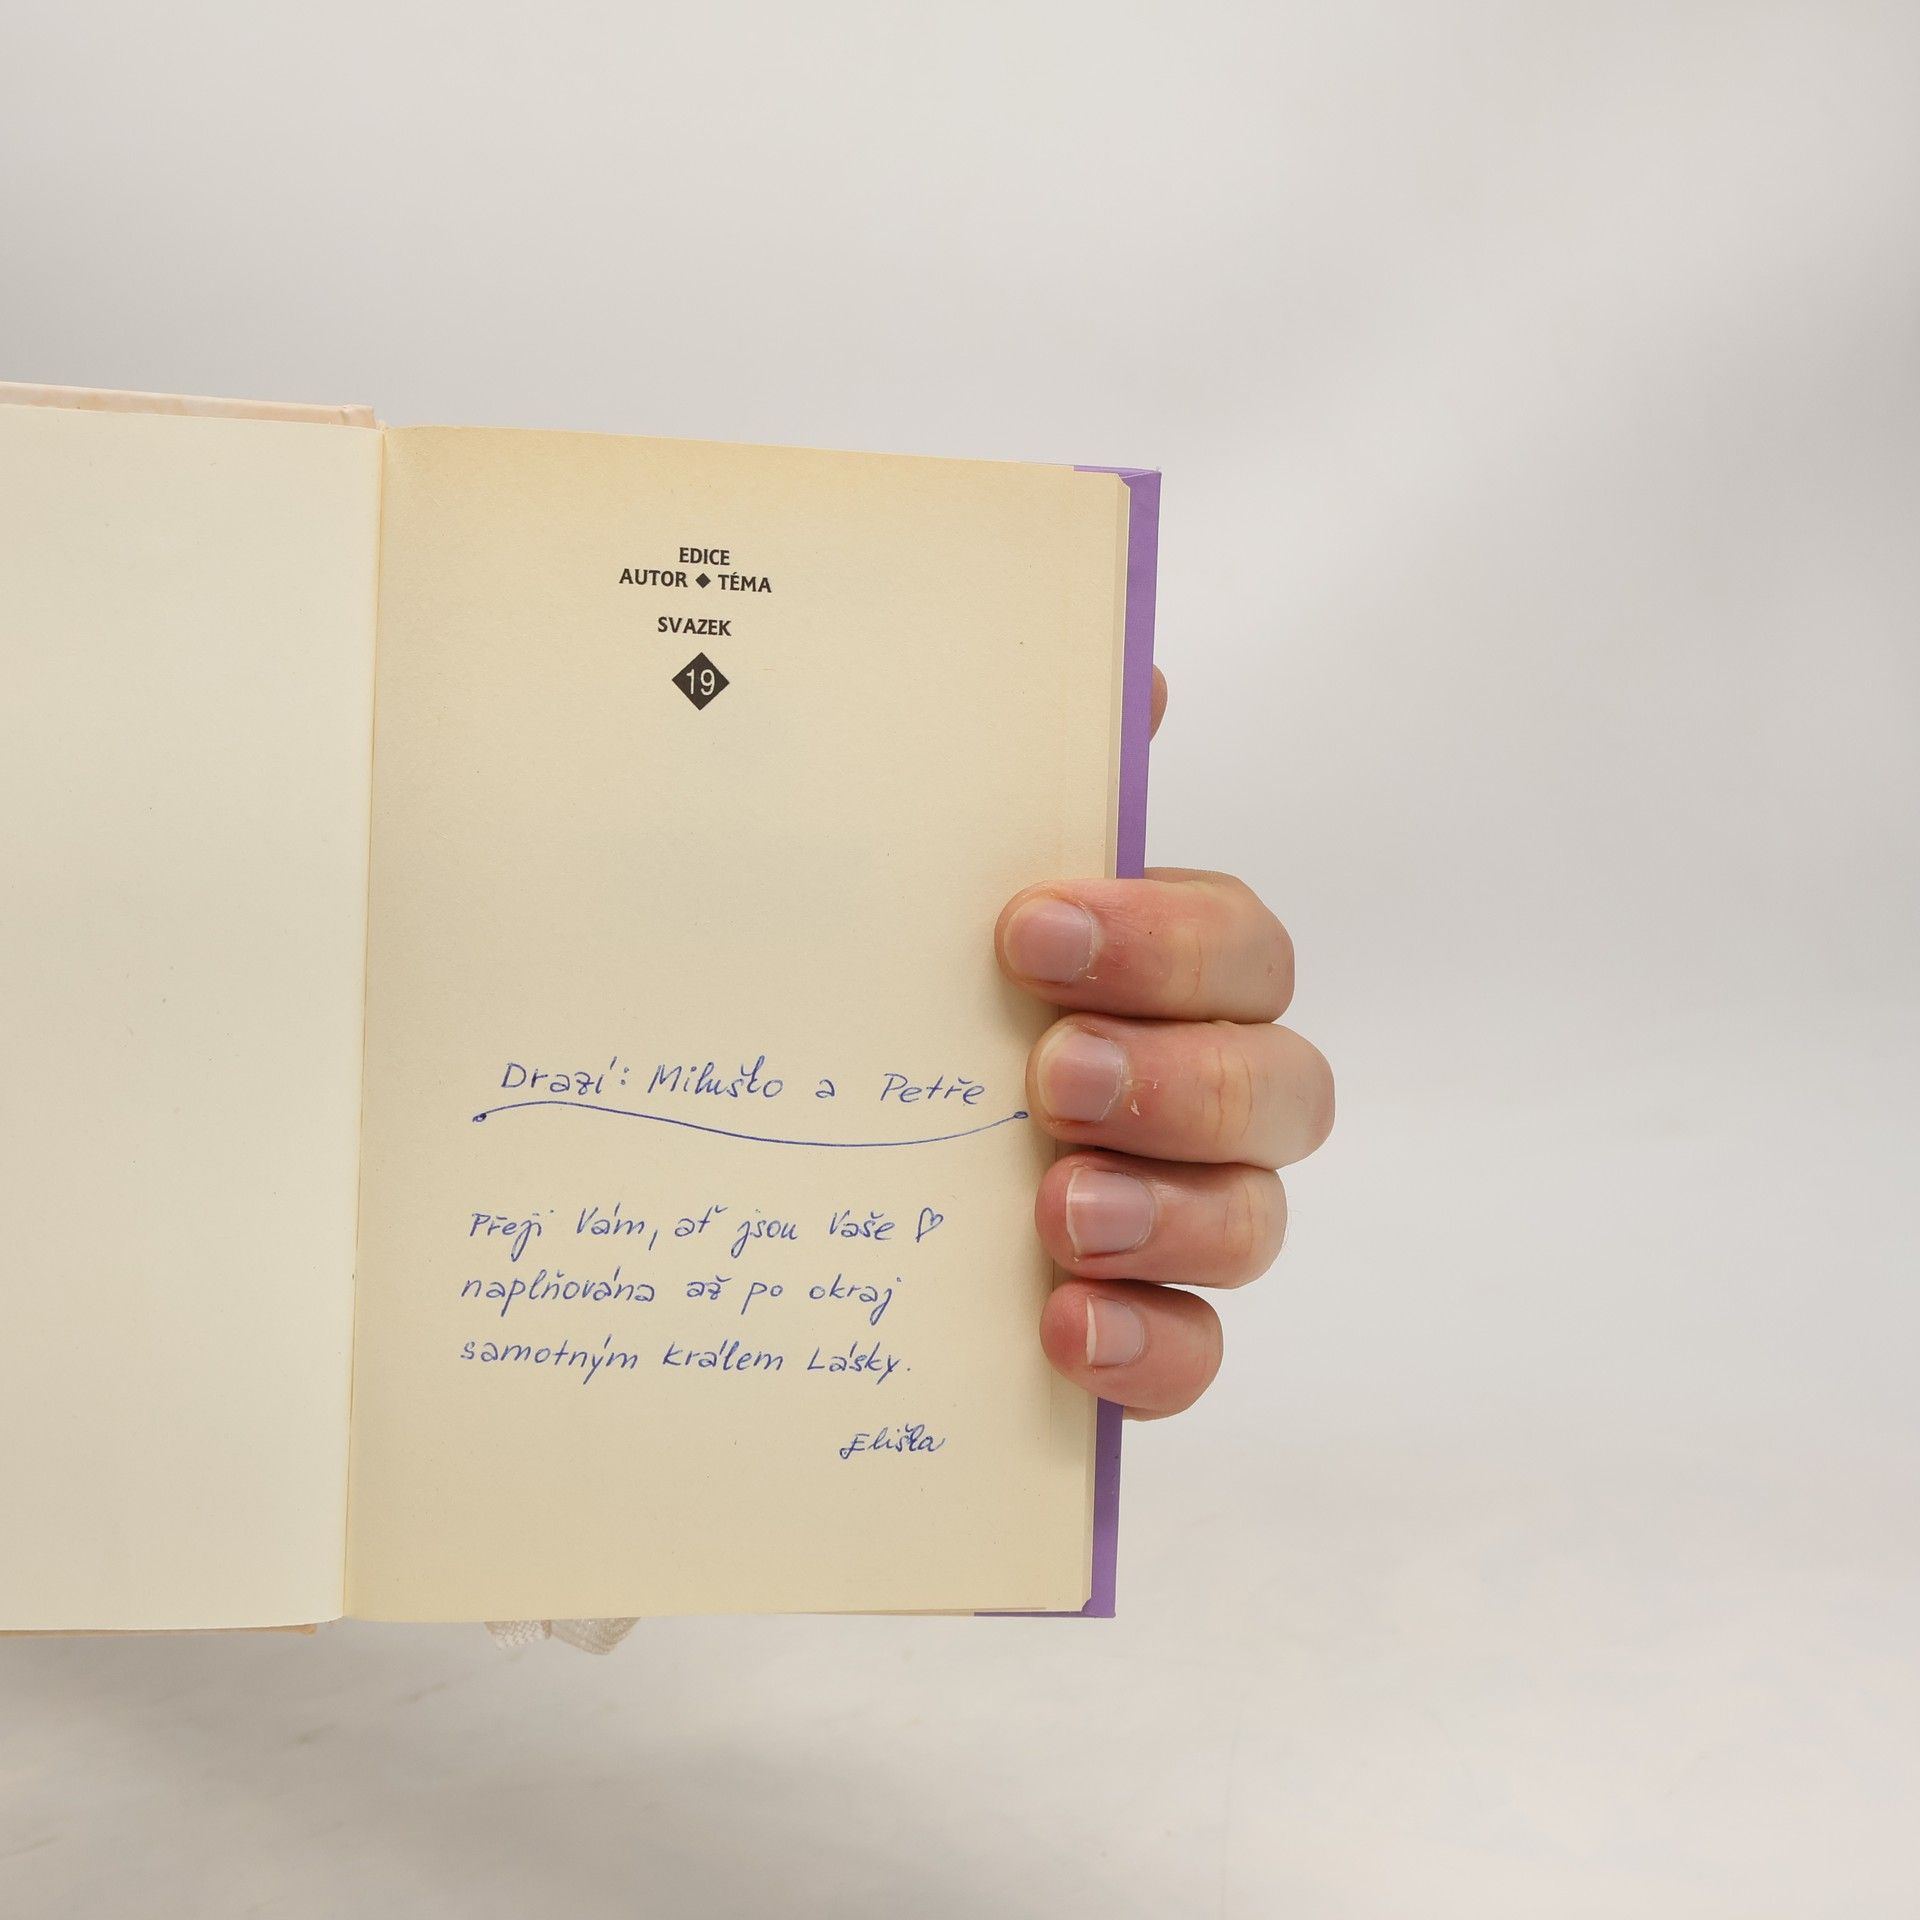 EDICE
AUTOR ◆ TÉMA
SVAZEK
19
Drazí: Miluško a Petře
Přeji Vám, ať jsou Vaše ♡
naplňována až po okraj
samotným králem Lásky.
Eliška